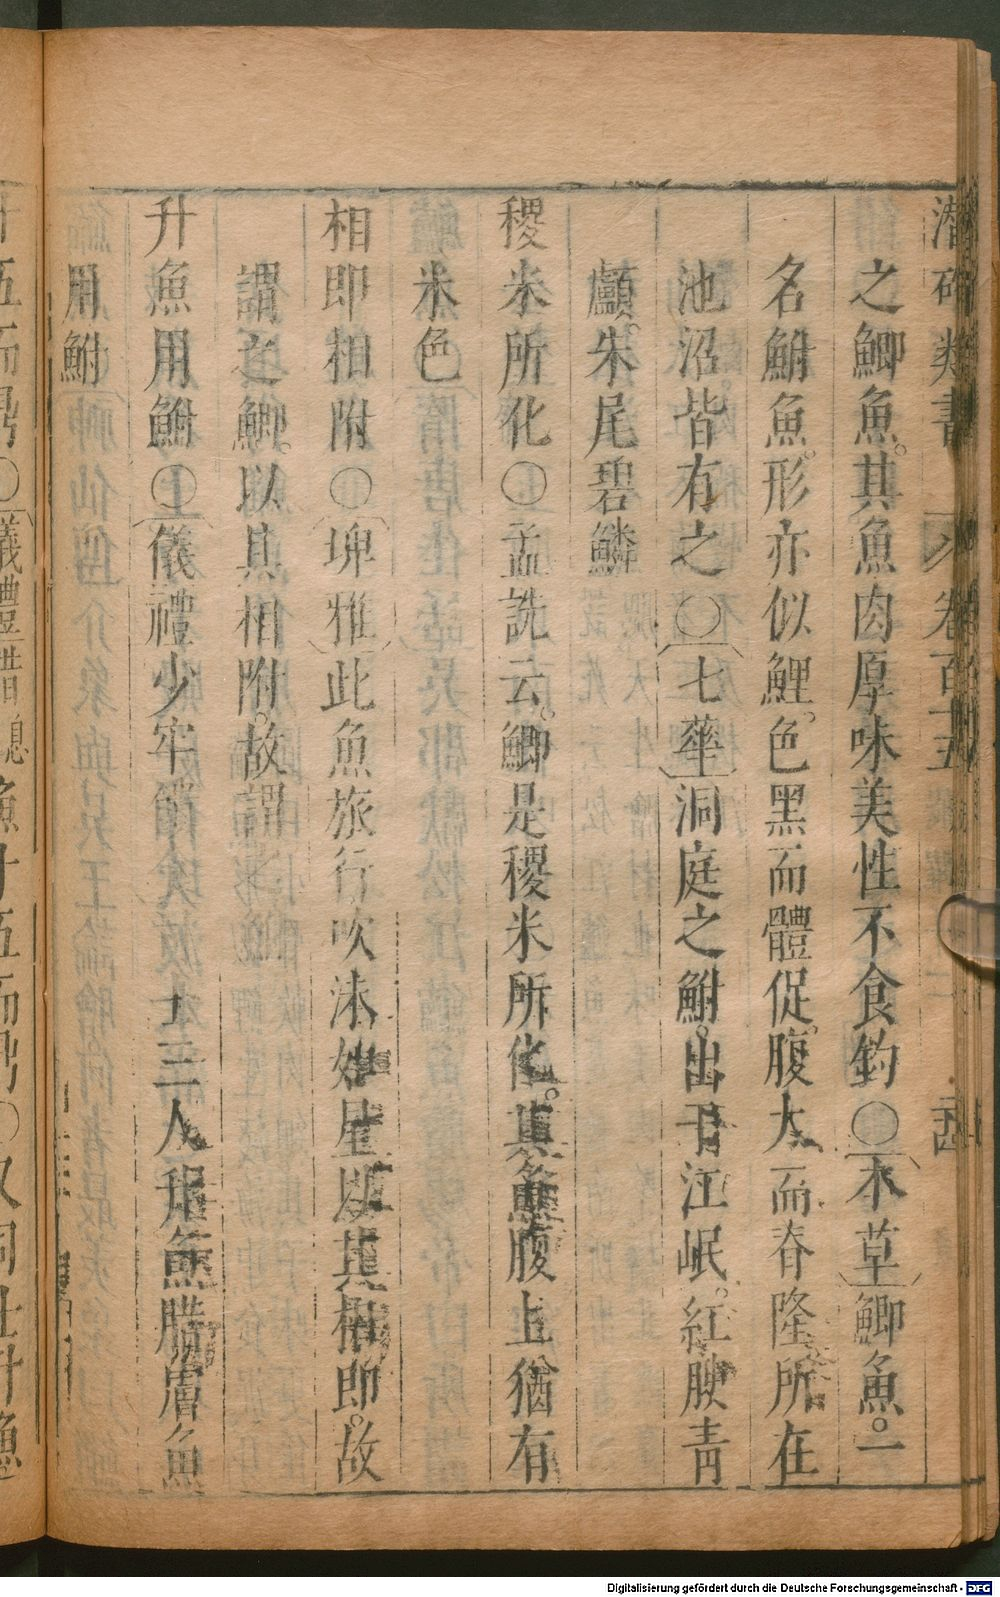 潛確類書 卷百十五
之鯽魚。其魚肉厚味美性不食釣○本草鯽魚。一
名鮒魚。形亦似鯉。色黑而體促。腹大而脊隆。所在
池沼皆有之○七華洞庭之鮒。出于江岷。紅腴青
顱。朱尾碧鱗
稷米所化○孟詵云。鯽是稷米所化。其魚腹上猶有
米色
相即相附○埤雅此魚旅行吹沫如星以其相即。故
謂之鯽。以其相附。故謂
升魚用鮒○儀禮少牢 十三人升魚腊膚魚
用鮒
Digitalisierung gefördert durch die Deutsche Forschungsgemeinschaft - DFG